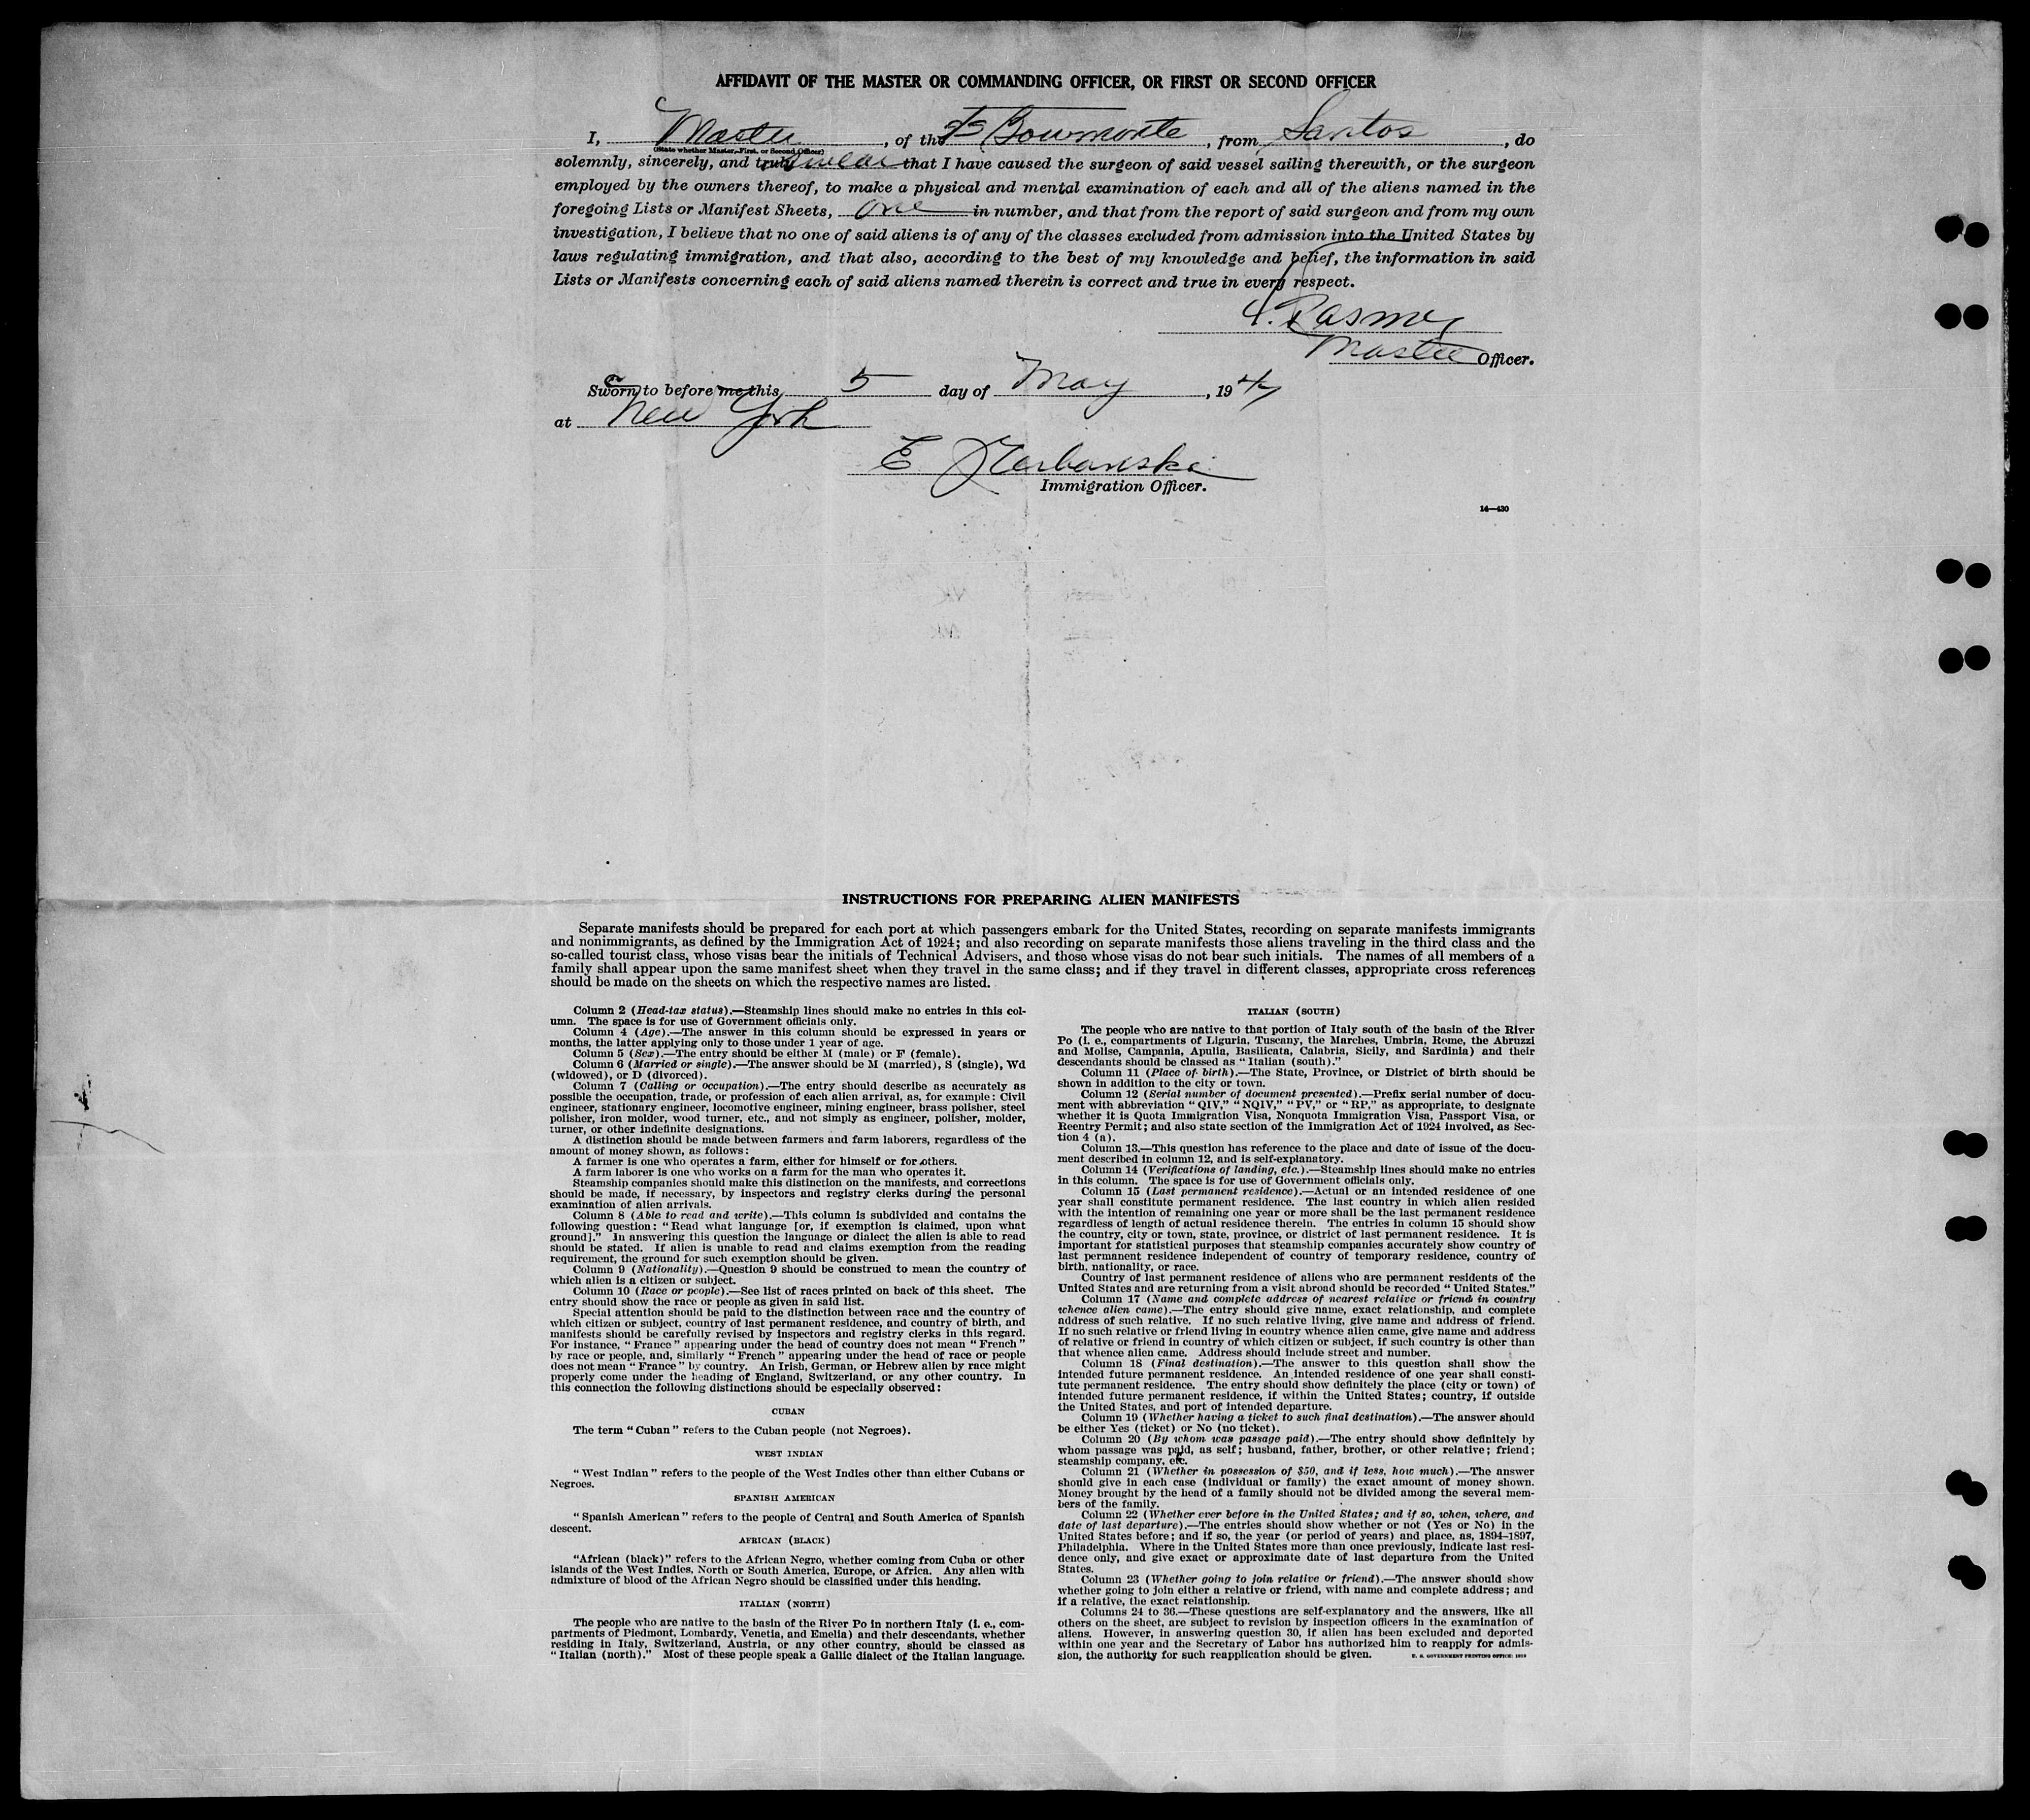 AFFIDAVIT OF THE MASTER OR COMMANDING OFFICER, OR FIRST OR SECOND OFFICER
I, Master, of the SS Bowmonte, from Santos, do
(State whether Master, First, or Second Officer)
solemnly, sincerely, and truly swear that I have caused the surgeon of said vessel sailing therewith, or the surgeon
employed by the owners thereof, to make a physical and mental examination of each and all of the aliens named in the
foregoing Lists or Manifest Sheets, one in number, and that from the report of said surgeon and from my own
investigation, I believe that no one of said aliens is of any of the classes excluded from admission into the United States by
laws regulating immigration, and that also, according to the best of my knowledge and belief, the information in said
Lists or Manifests concerning each of said aliens named therein is correct and true in every respect.
Master Officer.
Sworn to before me this 5 day of May, 1947
at New York
E
Immigration Officer.
14—430
INSTRUCTIONS FOR PREPARING ALIEN MANIFESTS
Separate manifests should be prepared for each port at which passengers embark for the United States, recording on separate manifests immigrants
and nonimmigrants, as defined by the Immigration Act of 1924; and also recording on separate manifests those aliens traveling in the third class and the
so-called tourist class, whose visas bear the initials of Technical Advisers, and those whose visas do not bear such initials. The names of all members of a
family shall appear upon the same manifest sheet when they travel in the same class; and if they travel in different classes, appropriate cross references
should be made on the sheets on which the respective names are listed.
Column 2 (Head-tax status).—Steamship lines should make no entries in this col-
umn. The space is for use of Government officials only.
Column 4 (Age).—The answer in this column should be expressed in years or
months, the latter applying only to those under 1 year of age.
Column 5 (Sex).—The entry should be either M (male) or F (female).
Column 6 (Married or single).—The answer should be M (married), S (single), Wd
(widowed), or D (divorced).
Column 7 (Calling or occupation).—The entry should describe as accurately as
possible the occupation, trade, or profession of each alien arrival, as, for example: Civil
engineer, stationary engineer, locomotive engineer, mining engineer, brass polisher, steel
polisher, iron molder, wood turner, etc., and not simply as engineer, polisher, molder,
turner, or other indefinite designations.
A distinction should be made between farmers and farm laborers, regardless of the
amount of money shown, as follows:
A farmer is one who operates a farm, either for himself or for others.
A farm laborer is one who works on a farm for the man who operates it.
Steamship companies should make this distinction on the manifests, and corrections
should be made, if necessary, by inspectors and registry clerks during the personal
examination of alien arrivals.
Column 8 (Able to read and write).—This column is subdivided and contains the
following question: "Read what language [or, if exemption is claimed, upon what
ground]." In answering this question the language or dialect the alien is able to read
should be stated. If alien is unable to read and claims exemption from the reading
requirement, the ground for such exemption should be given.
Column 9 (Nationality).—Question 9 should be construed to mean the country of
which alien is a citizen or subject.
Column 10 (Race or people).—See list of races printed on back of this sheet. The
entry should show the race or people as given in said list.
Special attention should be paid to the distinction between race and the country of
which citizen or subject, country of last permanent residence, and country of birth, and
manifests should be carefully revised by inspectors and registry clerks in this regard.
For instance, "France" appearing under the head of country does not mean "French"
by race or people, and, similarly "French" appearing under the head of race or people
does not mean "France" by country. An Irish, German, or Hebrew alien by race might
properly come under the heading of England, Switzerland, or any other country. In
this connection the following distinctions should be especially observed:
CUBAN
The term "Cuban" refers to the Cuban people (not Negroes).
WEST INDIAN
"West Indian" refers to the people of the West Indies other than either Cubans or
Negroes.
SPANISH AMERICAN
"Spanish American" refers to the people of Central and South America of Spanish
descent.
AFRICAN (BLACK)
"African (black)" refers to the African Negro, whether coming from Cuba or other
islands of the West Indies, North or South America, Europe, or Africa. Any alien with
admixture of blood of the African Negro should be classified under this heading.
ITALIAN (NORTH)
The people who are native to the basin of the River Po in northern Italy (i. e., com-
partments of Piedmont, Lombardy, Venetia, and Emelia) and their descendants, whether
residing in Italy, Switzerland, Austria, or any other country, should be classed as
"Italian (north)." Most of these people speak a Gallic dialect of the Italian language.
ITALIAN (SOUTH)
The people who are native to that portion of Italy south of the basin of the River
Po (i. e., compartments of Liguria, Tuscany, the Marches, Umbria, Rome, the Abruzzi
and Molise, Campania, Apulia, Basilicata, Calabria, Sicily, and Sardinia) and their
descendants should be classed as "Italian (south)."
Column 11 (Place of birth).—The State, Province, or District of birth should be
shown in addition to the city or town.
Column 12 (Serial number of document presented).—Prefix serial number of docu-
ment with abbreviation "QIV," "NQIV," "PV," or "RP," as appropriate, to designate
whether it is Quota Immigration Visa, Nonquota Immigration Visa, Passport Visa, or
Reentry Permit; and also state section of the Immigration Act of 1924 involved, as Sec-
tion 4 (a).
Column 13.—This question has reference to the place and date of issue of the docu-
ment described in column 12, and is self-explanatory.
Column 14 (Verifications of landing, etc.).—Steamship lines should make no entries
in this column. The space is for use of Government officials only.
Column 15 (Last permanent residence).—Actual or an intended residence of one
year shall constitute permanent residence. The last country in which alien resided
with the intention of remaining one year or more shall be the last permanent residence
regardless of length of actual residence therein. The entries in column 15 should show
the country, city or town, state, province, or district of last permanent residence. It is
important for statistical purposes that steamship companies accurately show country of
last permanent residence independent of country of temporary residence, country of
birth, nationality, or race.
Country of last permanent residence of aliens who are permanent residents of the
United States and are returning from a visit abroad should be recorded "United States."
Column 17 (Name and complete address of nearest relative or friend in country
whence alien came).—The entry should give name, exact relationship, and complete
address of such relative. If no such relative living, give name and address of friend.
If no such relative or friend living in country whence alien came, give name and address
of relative or friend in country of which citizen or subject, if such country is other than
that whence alien came. Address should include street and number.
Column 18 (Final destination).—The answer to this question shall show the
intended future permanent residence. An intended residence of one year shall consti-
tute permanent residence. The entry should show definitely the place (city or town) of
intended future permanent residence, if within the United States; country, if outside
the United States, and port of intended departure.
Column 19 (Whether having a ticket to such final destination).—The answer should
be either Yes (ticket) or No (no ticket).
Column 20 (By whom was passage paid).—The entry should show definitely by
whom passage was paid, as self; husband, father, brother, or other relative; friend;
steamship company, etc.
Column 21 (Whether in possession of $50, and if less, how much).—The answer
should give in each case (individual or family) the exact amount of money shown.
Money brought by the head of a family should not be divided among the several mem-
bers of the family.
Column 22 (Whether ever before in the United States; and if so, when, where, and
date of last departure).—The entries should show whether or not (Yes or No) in the
United States before; and if so, the year (or period of years) and place, as, 1894–1897,
Philadelphia. Where in the United States more than once previously, indicate last resi-
dence only, and give exact or approximate date of last departure from the United
States.
Column 23 (Whether going to join relative or friend).—The answer should show
whether going to join either a relative or friend, with name and complete address; and
if a relative, the exact relationship.
Columns 24 to 36.—These questions are self-explanatory and the answers, like all
others on the sheet, are subject to revision by inspection officers in the examination of
aliens. However, in answering question 30, if alien has been excluded and deported
within one year and the Secretary of Labor has authorized him to reapply for admis-
sion, the authority for such reapplication should be given.
U. S. GOVERNMENT PRINTING OFFICE: